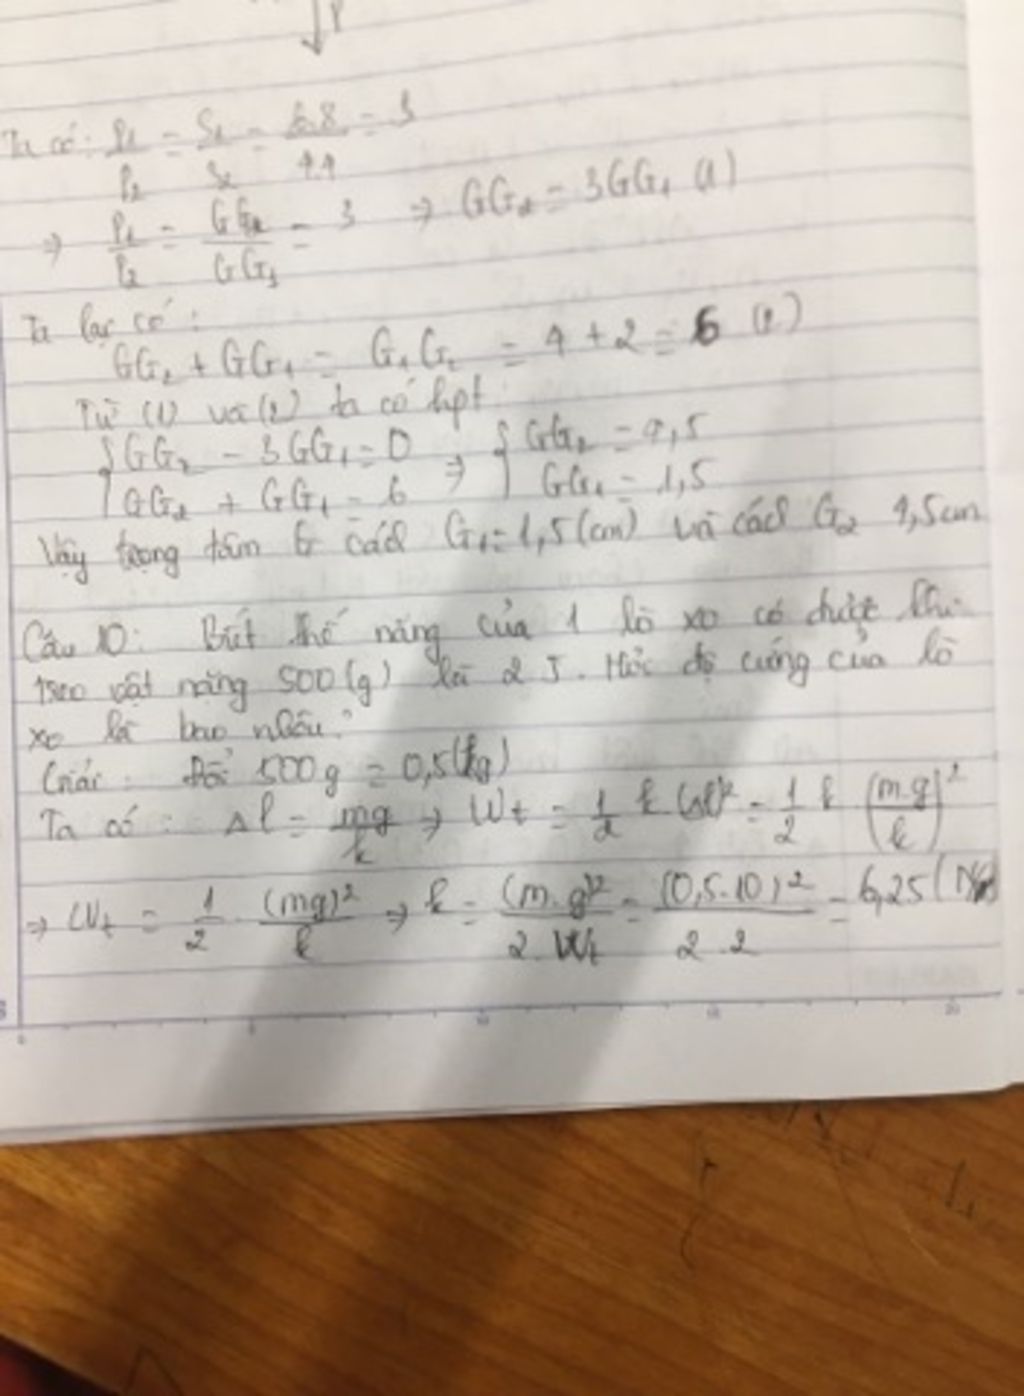 P
Ta có: P₁/P₂ = S₁/S₂ = 6.8/4.4 = 3
⇒ P₁/P₂ = GG₂/GG₁ = 3 ⇒ GG₂ = 3GG₁ (1)
Ta lại có:
GG₂ + GG₁ = G₁G₂ = 4 + 2 = 6 (2)
Từ (1) và (2) ta có hpt:
{ GG₂ - 3GG₁ = 0 ⇒ { GG₂ = 4,5
GG₂ + GG₁ = 6 GG₁ = 1,5
Vậy trọng tâm G cách G₁ = 1,5 (cm) và cách G₂ 4,5cm
Câu 10: Biết thế năng của 1 lò xo có được khi
treo vật nặng 500 (g) là 2 J. Hỏi độ cứng của lò
xo là bao nhiêu?
Giải: Đổi 500g = 0,5 (kg)
Ta có: Δl = mg/k ⇒ Wt = 1/2 k (Δl)² = 1/2 k (m.g/k)²
⇒ Wt = 1/2 . (mg)²/k ⇒ k = (m.g)²/2.Wt = (0,5.10)²/2.2 = 6,25 (
0 5 10 15 20